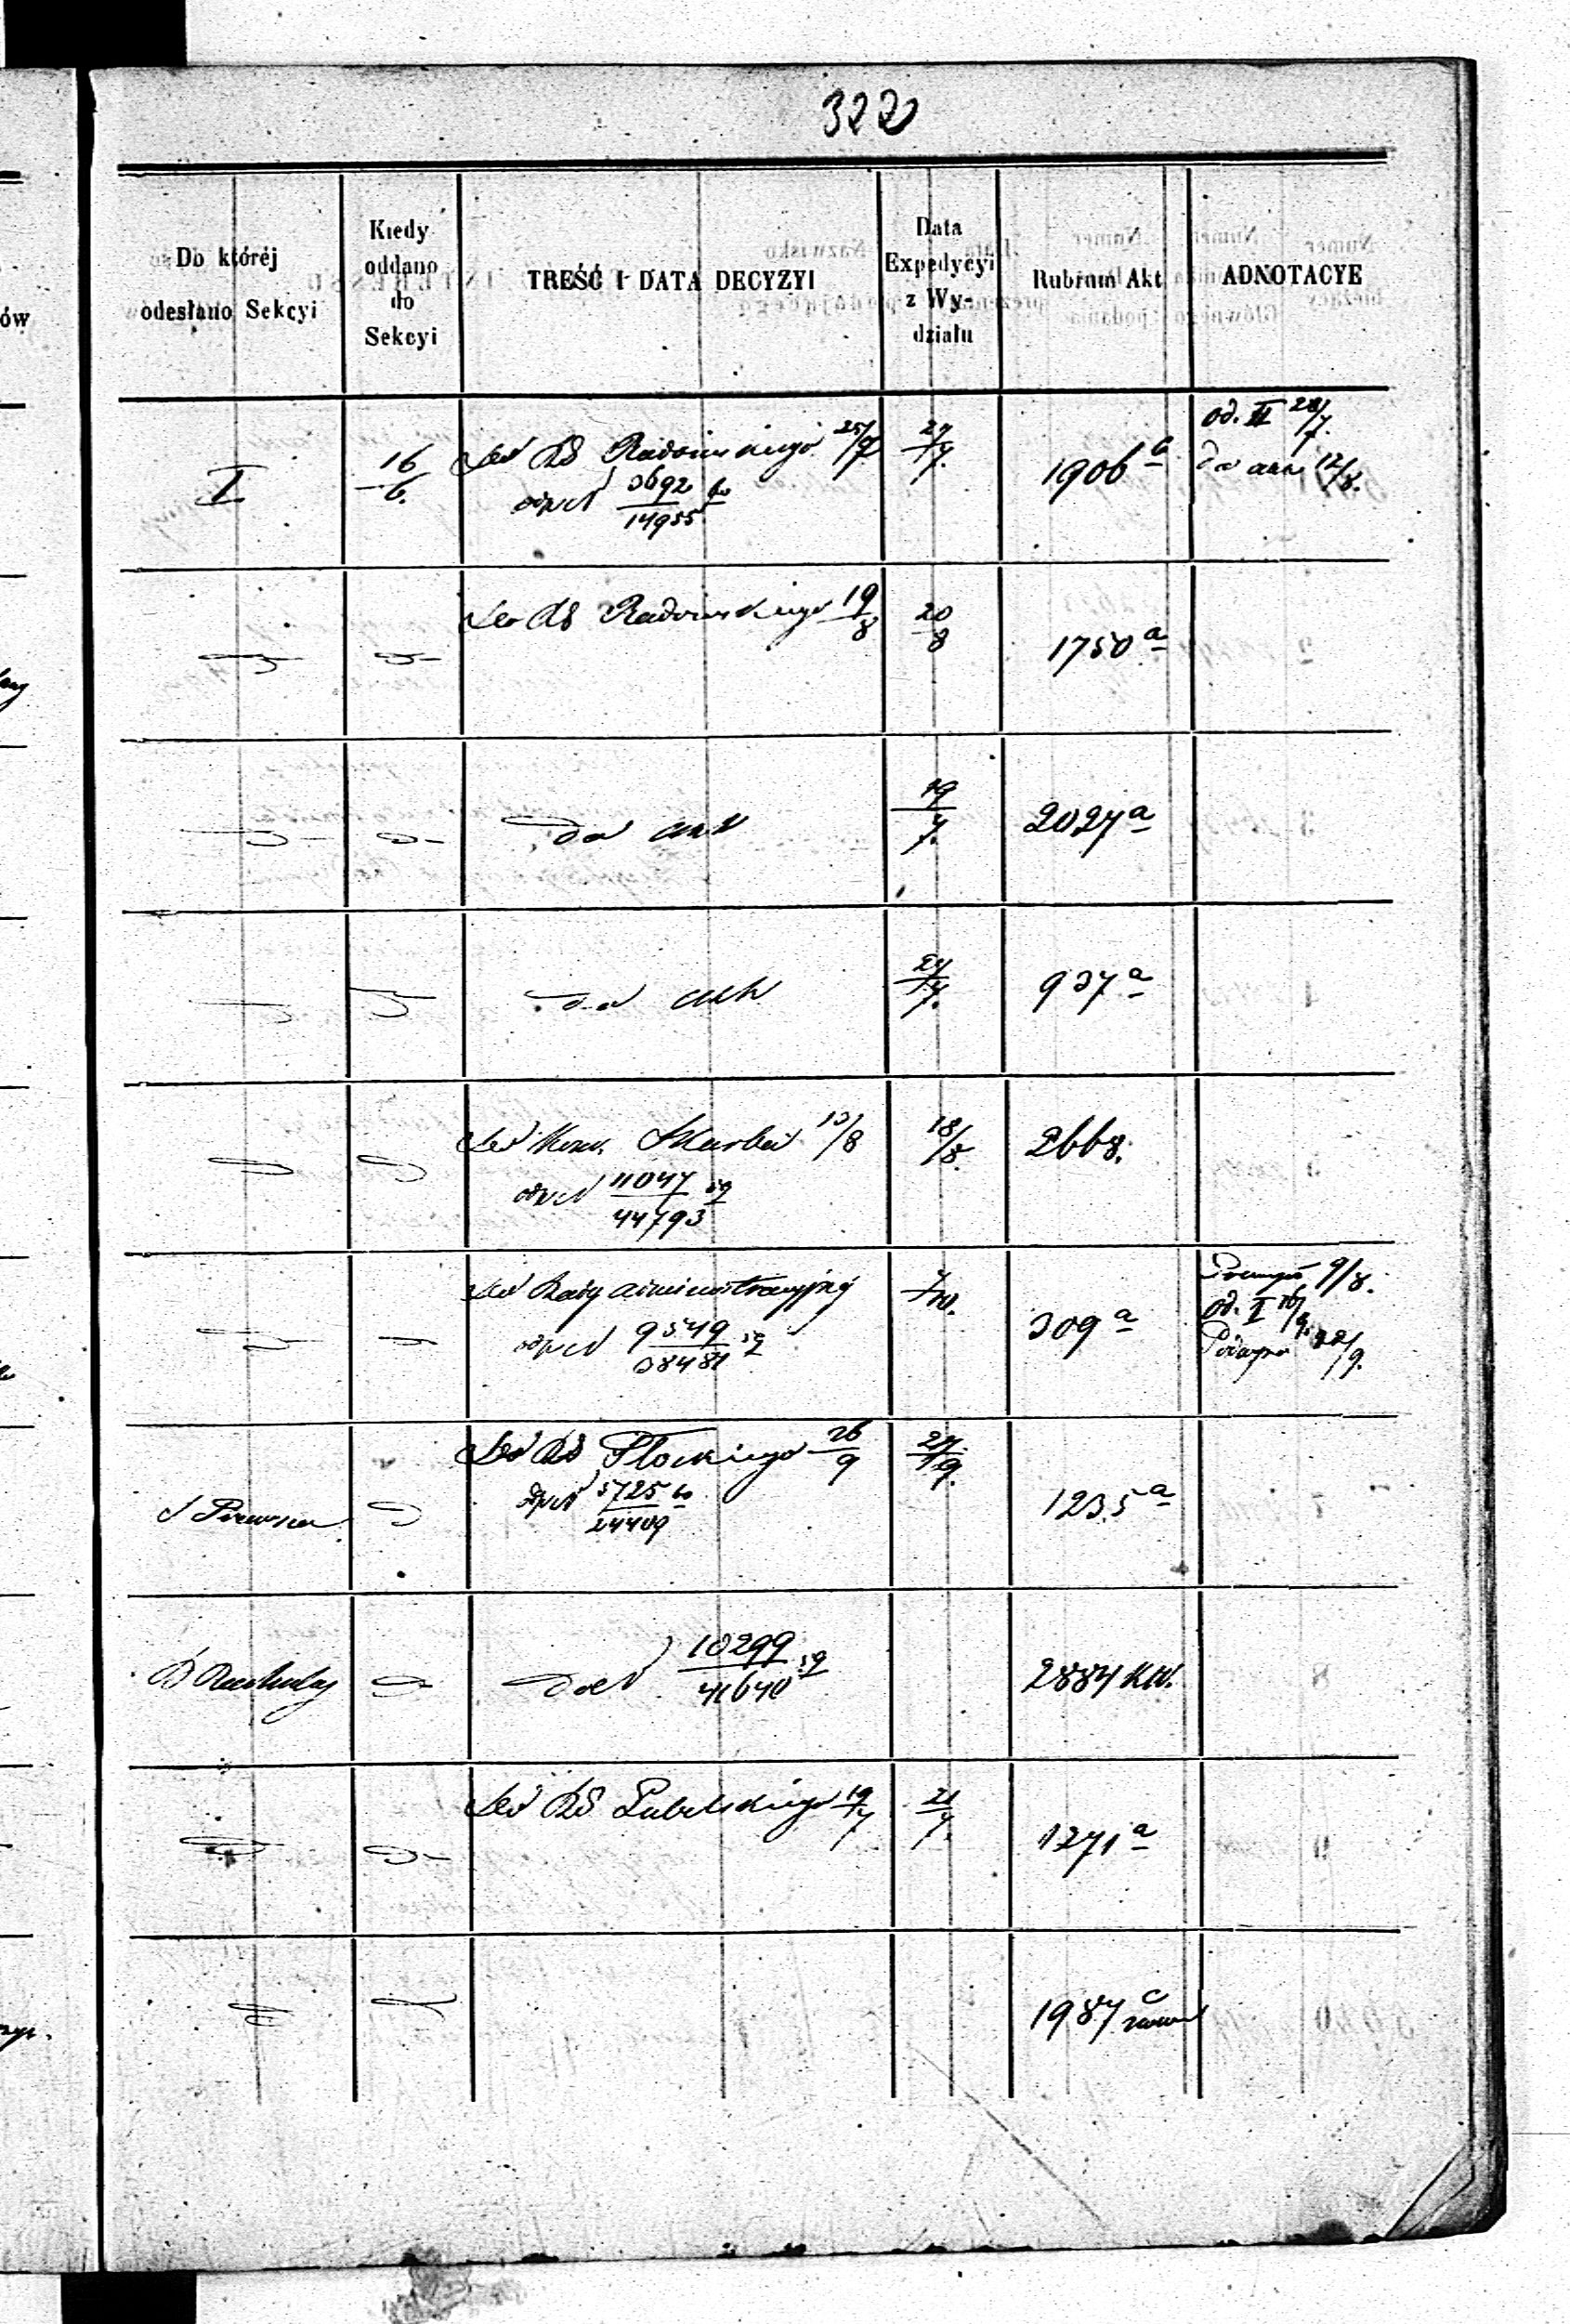 322
Do któréj
odesłano Sekcyi
Kiedy
oddano
do
Sekcyi
TREŚĆ I DATA DECYZYI
Data
Expedycyi
z Wy-
działu
Rubrum Akt
ADNOTACYE
I
16/6.
Do RG Radomskiego 25/7
3692/14955
27/7.
1906 b
od. II 28/7.
do akt 12/8.
Do RG Radomskiego 19/8
20/8
1750 a
do akt
19/7.
2027 a
do akt
24/7.
937 a
Do Kom. Skarbu 13/8
11047/44793 59
18/8.
2668.
Do Rady administracyjnej
9549/38481 59
7/10.
309 a
9/8.
od. I 16/9.
22/9.
Do RG Płockiego 26/9
5725/24409
27/9.
1235 a
10299/41640 59
2884 KW.
Do RG Lubelskiego 19/7
21/7.
1271 a
1987 c